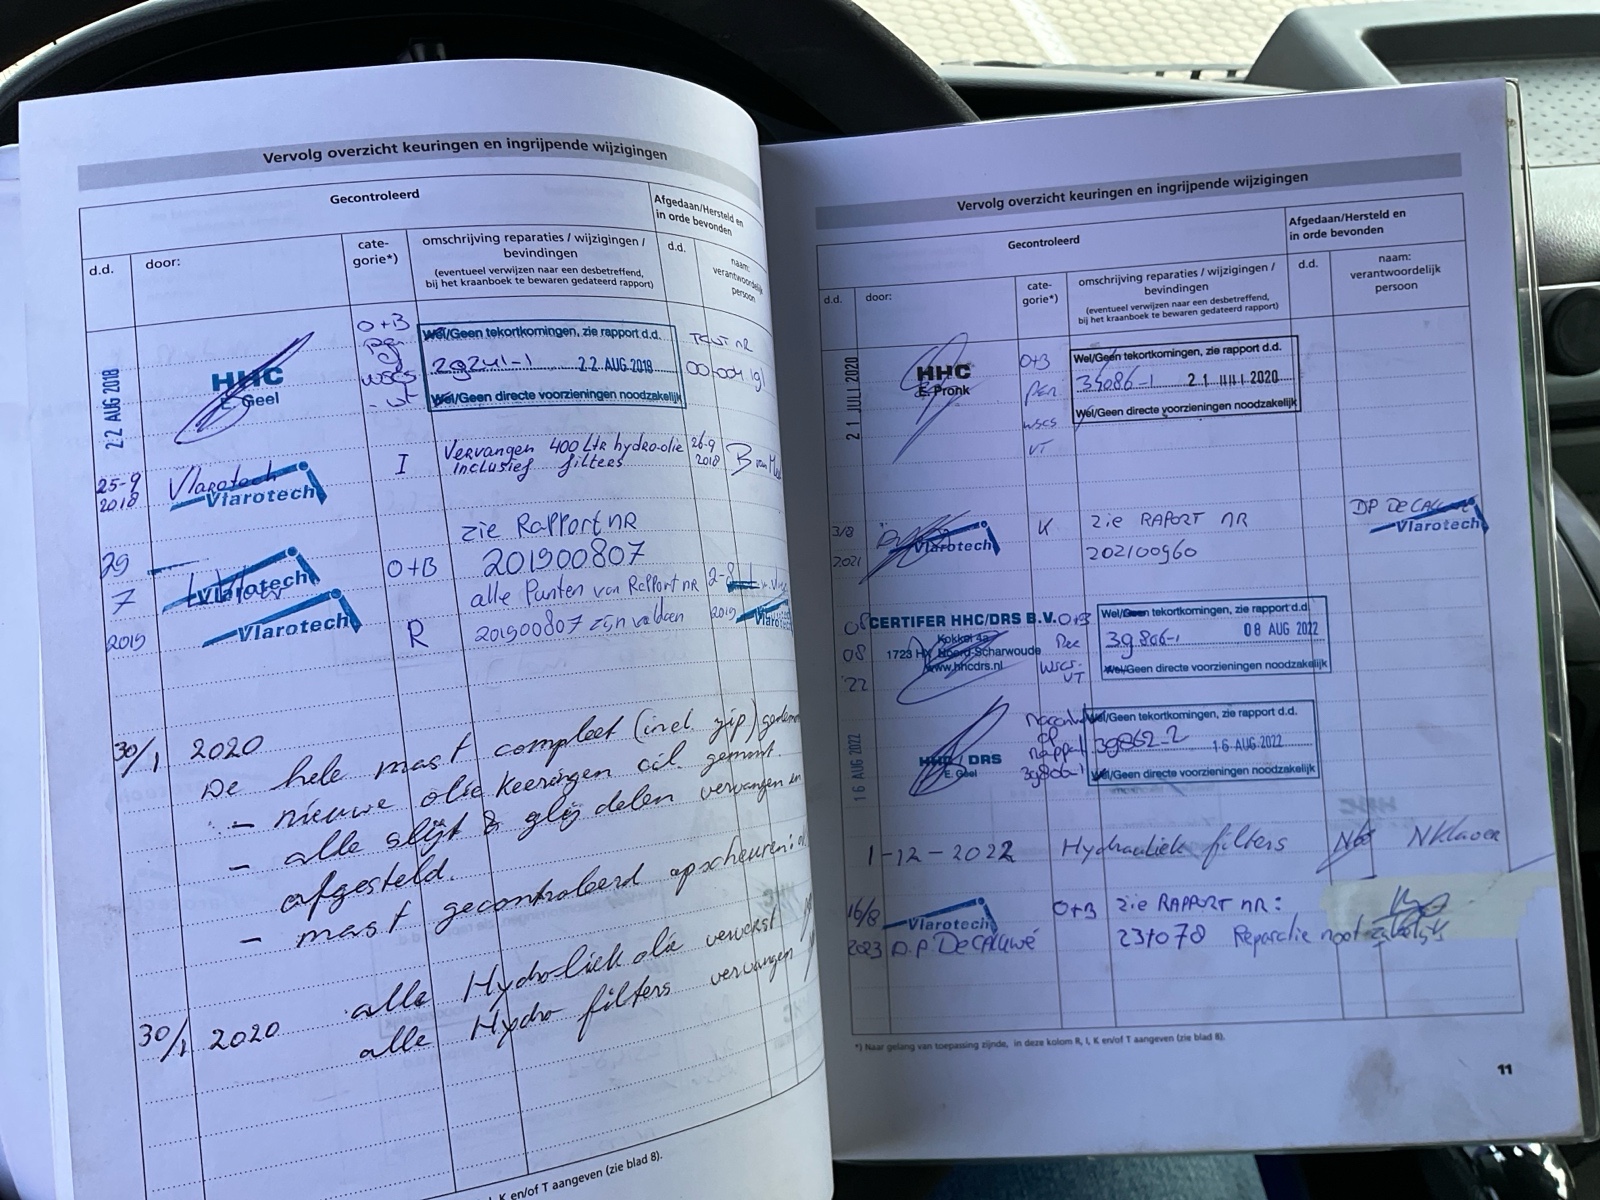 Vervolg overzicht keuringen en ingrijpende wijzigingen
Gecontroleerd
Afgedaan/Hersteld en
in orde bevonden
d.d.
door:
cate-
gorie*)
omschrijving reparaties / wijzigingen /
bevindingen
(eventueel verwijzen naar een desbetreffend,
bij het kraanboek te bewaren gedateerd rapport)
d.d.
naam:
verantwoordelijk
persoon
22 AUG 2018
HHC
E. Geel
O+B
WSCS
VT
Wel/Geen tekortkomingen, zie rapport d.d.
29241-1 22 AUG 2018
Wel/Geen directe voorzieningen noodzakelijk
25-9
2018
Vlarotech
Vlarotech
I
Vervangen 400 Ltr hydr-olie
inclusief filters
26-9
2018
29
7
2019
Vlarotech
O+B
zie Rapport nR
201900807
Vlarotech
R
alle Punten van Rapport nr
201900807 zijn voldaan
2-8
2019
Vlarotech
30/1 2020
De hele mast compleet (incl. zip)
- nieuwe olie keeringen oil gemont
- alle slijt & glij delen vervangen en
afgesteld.
- mast gecontroleerd op scheuren
30/1 2020 alle Hydroliek olie ververst
alle Hydro filters vervangen
K en/of T aangeven (zie blad 8).
Vervolg overzicht keuringen en ingrijpende wijzigingen
Gecontroleerd
Afgedaan/Hersteld en
in orde bevonden
d.d.
door:
cate-
gorie*)
omschrijving reparaties / wijzigingen /
bevindingen
(eventueel verwijzen naar een desbetreffend,
bij het kraanboek te bewaren gedateerd rapport)
d.d.
naam:
verantwoordelijk
persoon
21 JULI 2020
HHC
E. Pronk
O+B
WSCS
VT
Wel/Geen tekortkomingen, zie rapport d.d.
34086-1 21 JULI 2020
Wel/Geen directe voorzieningen noodzakelijk
3/8
2021
Vlarotech
K
zie RAPORT nR
202100960
DP DE CALUWE
Vlarotech
08
08
'22
CERTIFER HHC/DRS B.V.
Kokkel 4a
1723 HX Noord-Scharwoude
www.hhcdrs.nl
O+B
WSCS-
VT
Wel/Geen tekortkomingen, zie rapport d.d.
39806-1 08 AUG 2022
Wel/Geen directe voorzieningen noodzakelijk
16 AUG 2022
HHC / DRS
E. Geel
op
rapport
39806-1
Wel/Geen tekortkomingen, zie rapport d.d.
39862-2 16 AUG 2022
Wel/Geen directe voorzieningen noodzakelijk
1-12-2022 Hydrauliek filters NKlaver
16/8
2023
Vlarotech
D.P. De Caluwé
O+B
zie RAPPORT nR:
231078 Reparatie noodzakelijk
*) Naar gelang van toepassing zijnde, in deze kolom R, I, K en/of T aangeven (zie blad 8).
11